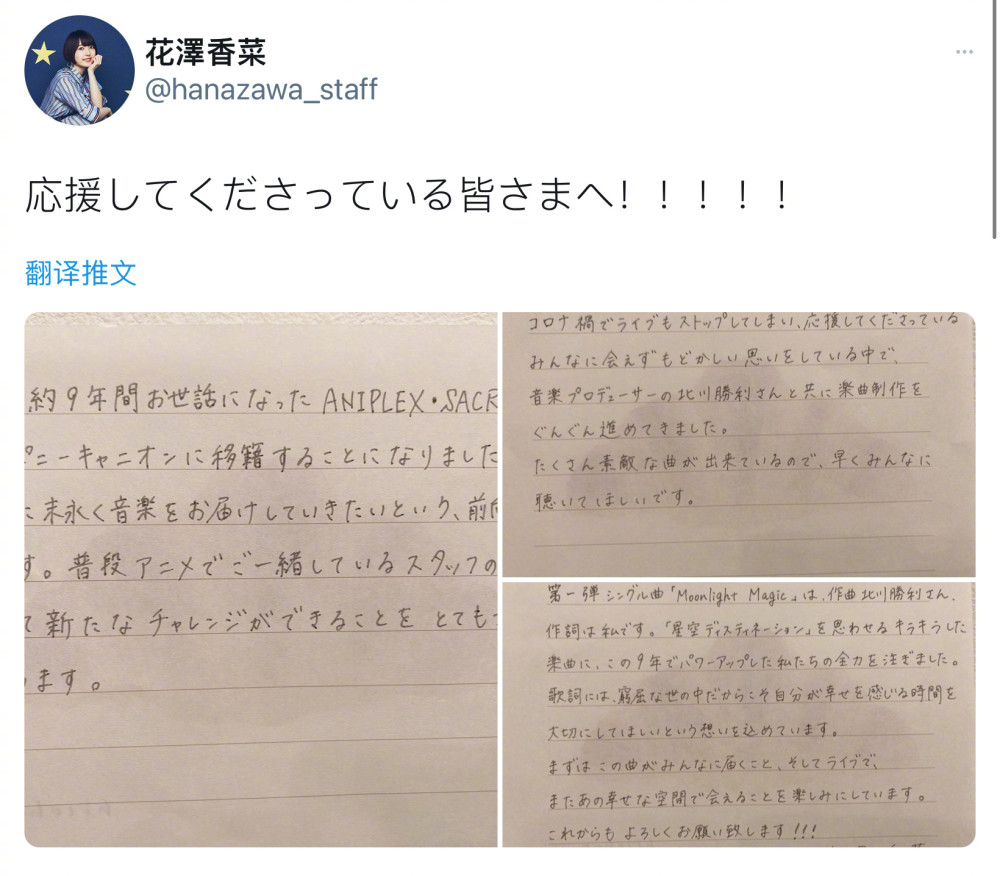 花澤香菜
@hanazawa_staff
応援してくださっている皆さまへ！！！！！
翻译推文
約9年間お世話になったANIPLEX・SACR
ニーキャニオンに移籍することになりました
末永く音楽をお届けしていきたいという、前
す。普段アニメでご一緒しているスタッフの
て新たなチャレンジができることをとても
ます。
コロナ禍でライブもストップしてしまい、応援してくださっている
みんなに会えずもどかしい思いをしている中で、
音楽プロデューサーの北川勝利さんと共に楽曲制作を
ぐんぐん進めてきました。
たくさん素敵な曲が出来ているので、早くみんなに
聴いてほしいです。
第一弾シングル曲「Moonlight Magic」は、作曲北川勝利さん、
作詞は私です。「星空ディスティネーション」を思わせるキラキラした
楽曲に、この9年でパワーアップした私たちの全力を注ぎました。
歌詞には、窮屈な世の中だからこそ自分が幸せを感じる時間を
大切にしてほしいという想いを込めています。
まずはこの曲がみんなに届くこと、そしてライブで、
またあの幸せな空間で会えることを楽しみにしています。
これからもよろしくお願い致します!!!